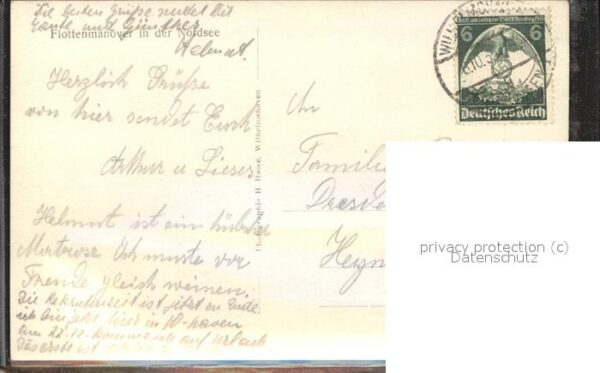 Die besten Grüße sendet Dir
Tante und Günther
Flottenmanöver in der Nordsee
Helmut.
Herzlich Grüße
von hier sendet Euch
Arthur u Liesel
Helmut ist ein hübscher
Matrose Ich musste vor
Freude gleich weinen.
Die Rekrutenzeit ist jetzt zu Ende
hier in W-haven
am 22.12. komme auf Urlaub
Das erste ist
An
Familie
Dresde
Heyn
6 6
Deutsches Reich
privacy protection (c)
Datenschutz